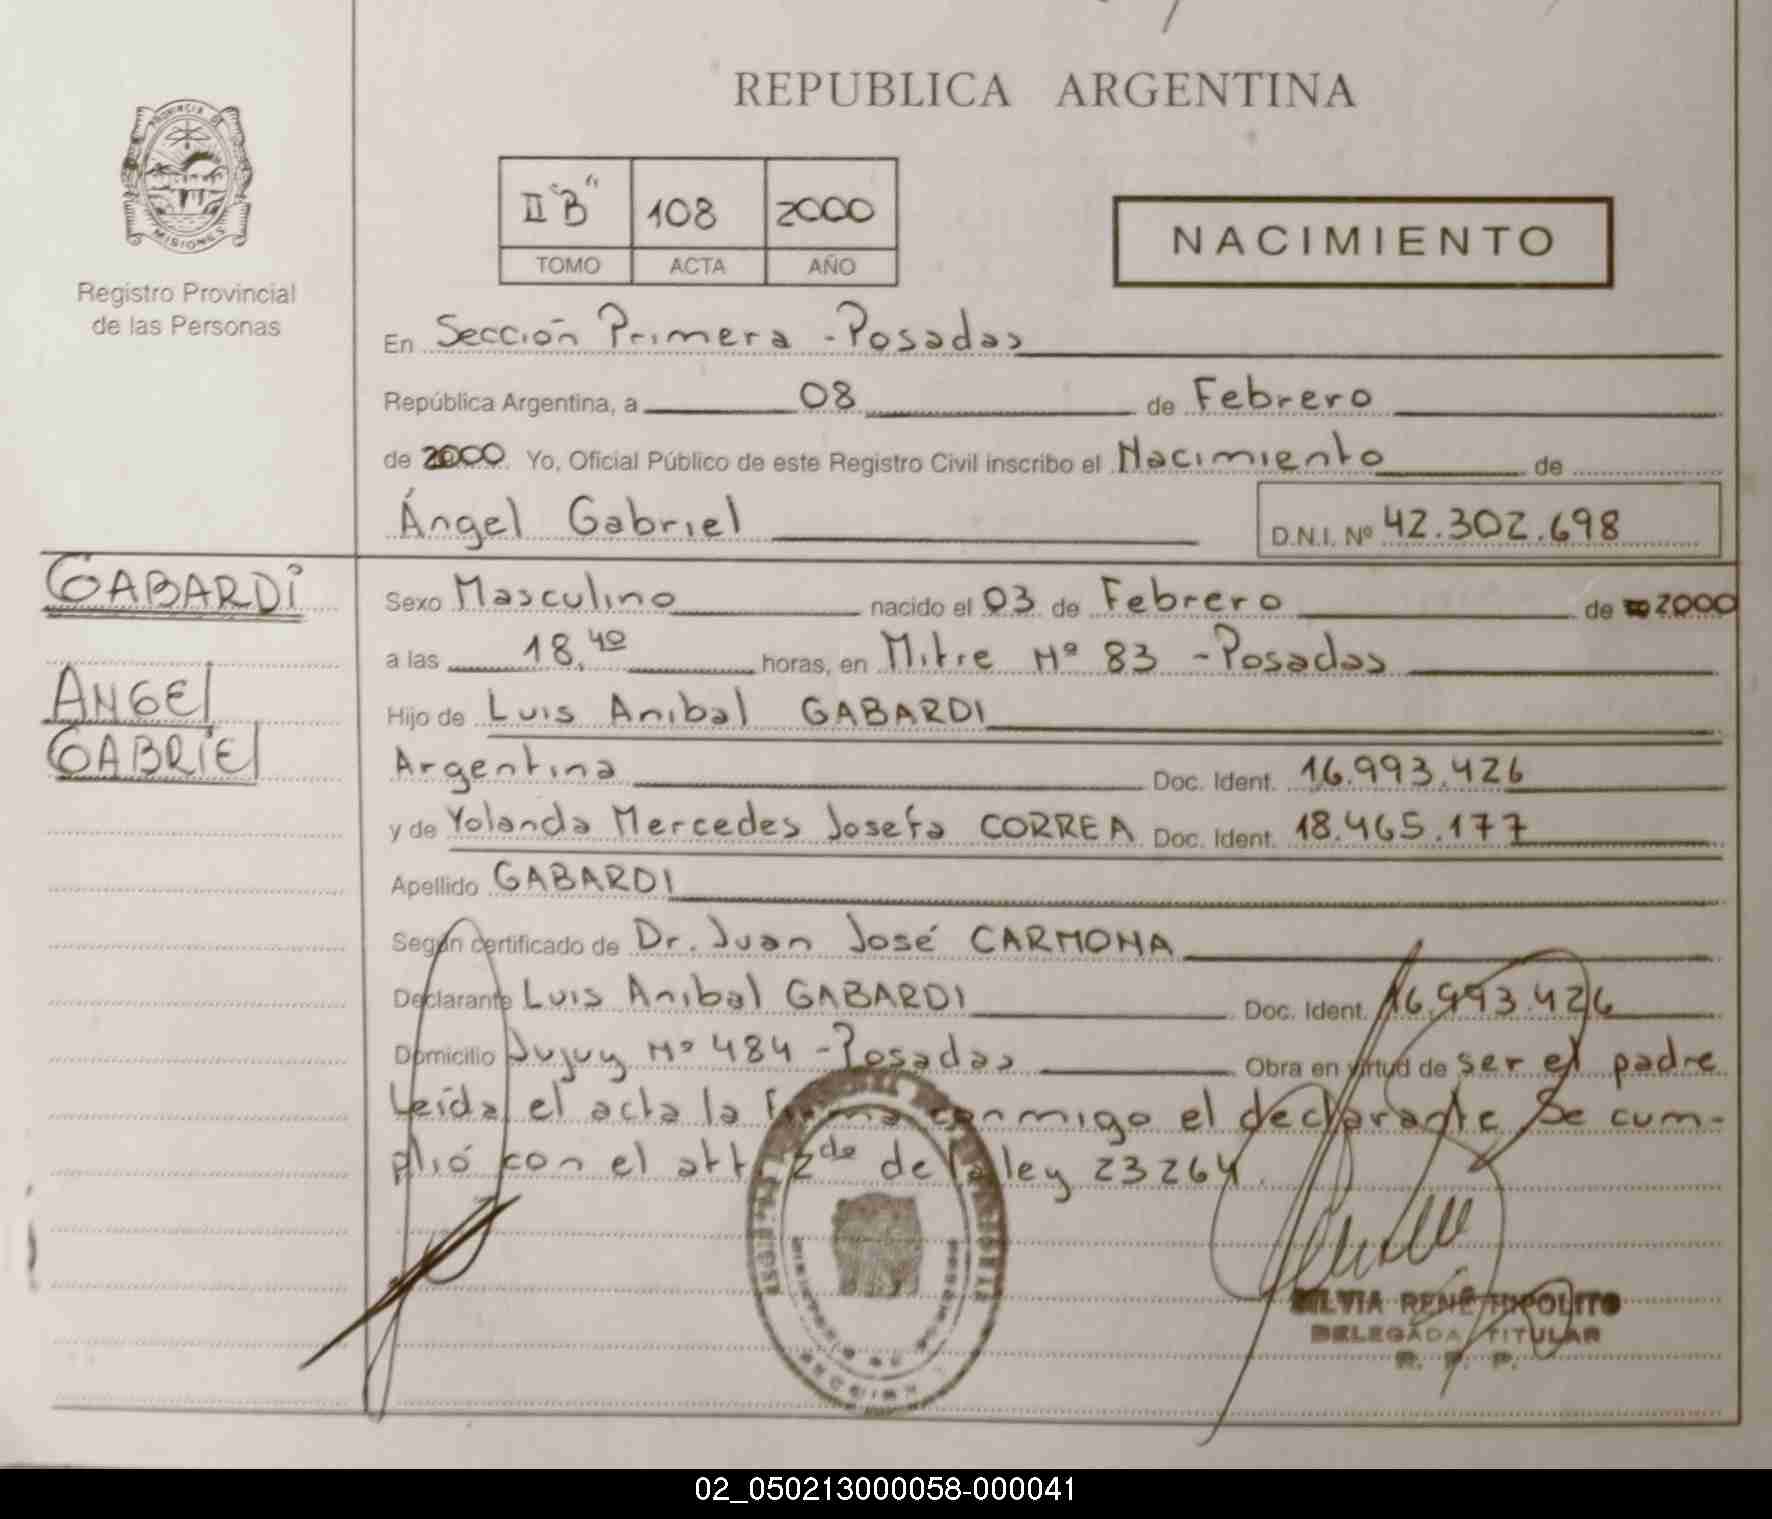 REPUBLICA ARGENTINA
PROVINCIA DE
MISIONES
Registro Provincial
de las Personas
II "B" 108 2000
TOMO ACTA AÑO
NACIMIENTO
En Sección Primera - Posadas
República Argentina, a 08 de Febrero
de 2000 Yo, Oficial Público de este Registro Civil inscribo el Nacimiento de
Ángel Gabriel D.N.I. Nº 42.302.698
GABARDI
ANGEL
GABRIEL
Sexo Masculino nacido el 03 de Febrero de 2000
a las 18,40 horas, en Mitre Nº 83 - Posadas
Hijo de Luis Anibal GABARDI
Argentina Doc. Ident. 16.993.426
y de Yolanda Mercedes Josefa CORREA Doc. Ident. 18.465.177
Apellido GABARDI
Según certificado de Dr. Juan José CARMONA
Declarante Luis Anibal GABARDI Doc. Ident. 16.993.426
Domicilio Jujuy Nº 484 - Posadas Obra en virtud de ser el padre
Leída el acta la firma conmigo el declarante. Se cum-
plió con el art 2do de la ley 23264.
SILVIA RENÉ HIPOLITO
DELEGADA TITULAR
R. P. P.
02_050213000058-000041